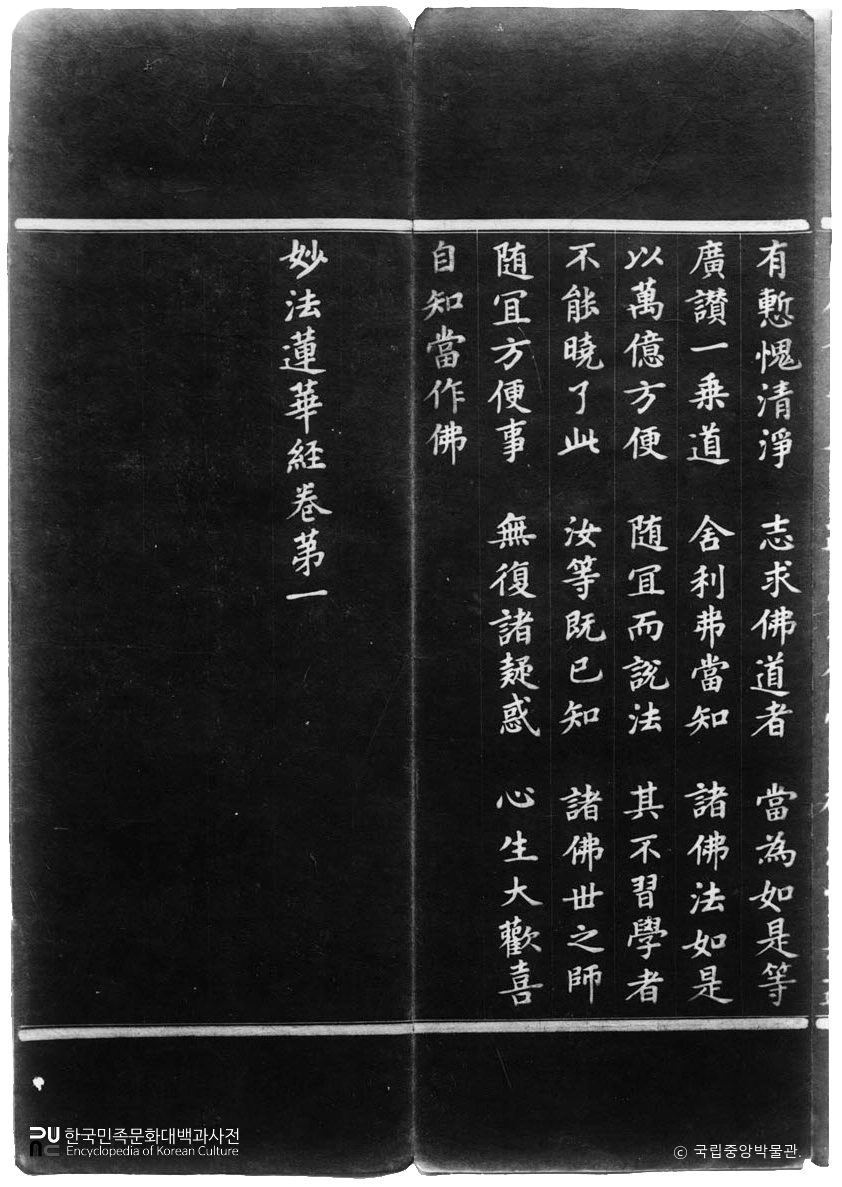 有慙愧清淨 志求佛道者 當為如是等
廣讃一乗道 舎利弗當知 諸佛法如是
以萬億方便 随冝而説法 其不習學者
不能曉了此 汝等既已知 諸佛世之師
随冝方便事 無復諸疑惑 心生大歡喜
自知當作佛
妙法蓮華経卷第一
한국민족문화대백과사전
Encyclopedia of Korean Culture
© 국립중앙박물관.